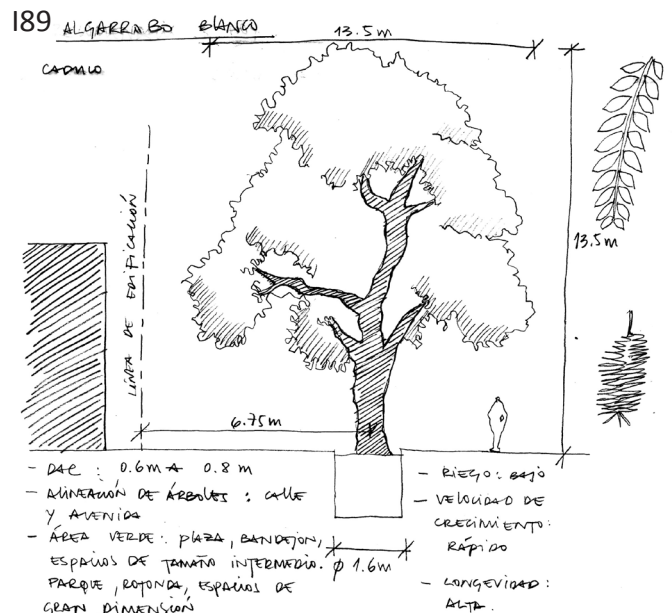 I89 ALGARROBO BLANCO
CADUCO
13.5m
13.5m
LÍNEA DE EDIFICACIÓN
6.75m
- DAC : 0.6m A 0.8 m
- ALINEACIÓN DE ÁRBOLES : CALLE
Y AVENIDA
- ÁREA VERDE: PLAZA, BANDEJÓN,
ESPACIOS DE TAMAÑO INTERMEDIO.
PARQUE, ROTONDA, ESPACIOS DE
GRAN DIMENSIÓN
φ 1.6m
- RIEGO: BAJO
- VELOCIDAD DE
CRECIMIENTO:
RÁPIDO
- LONGEVIDAD:
ALTA.